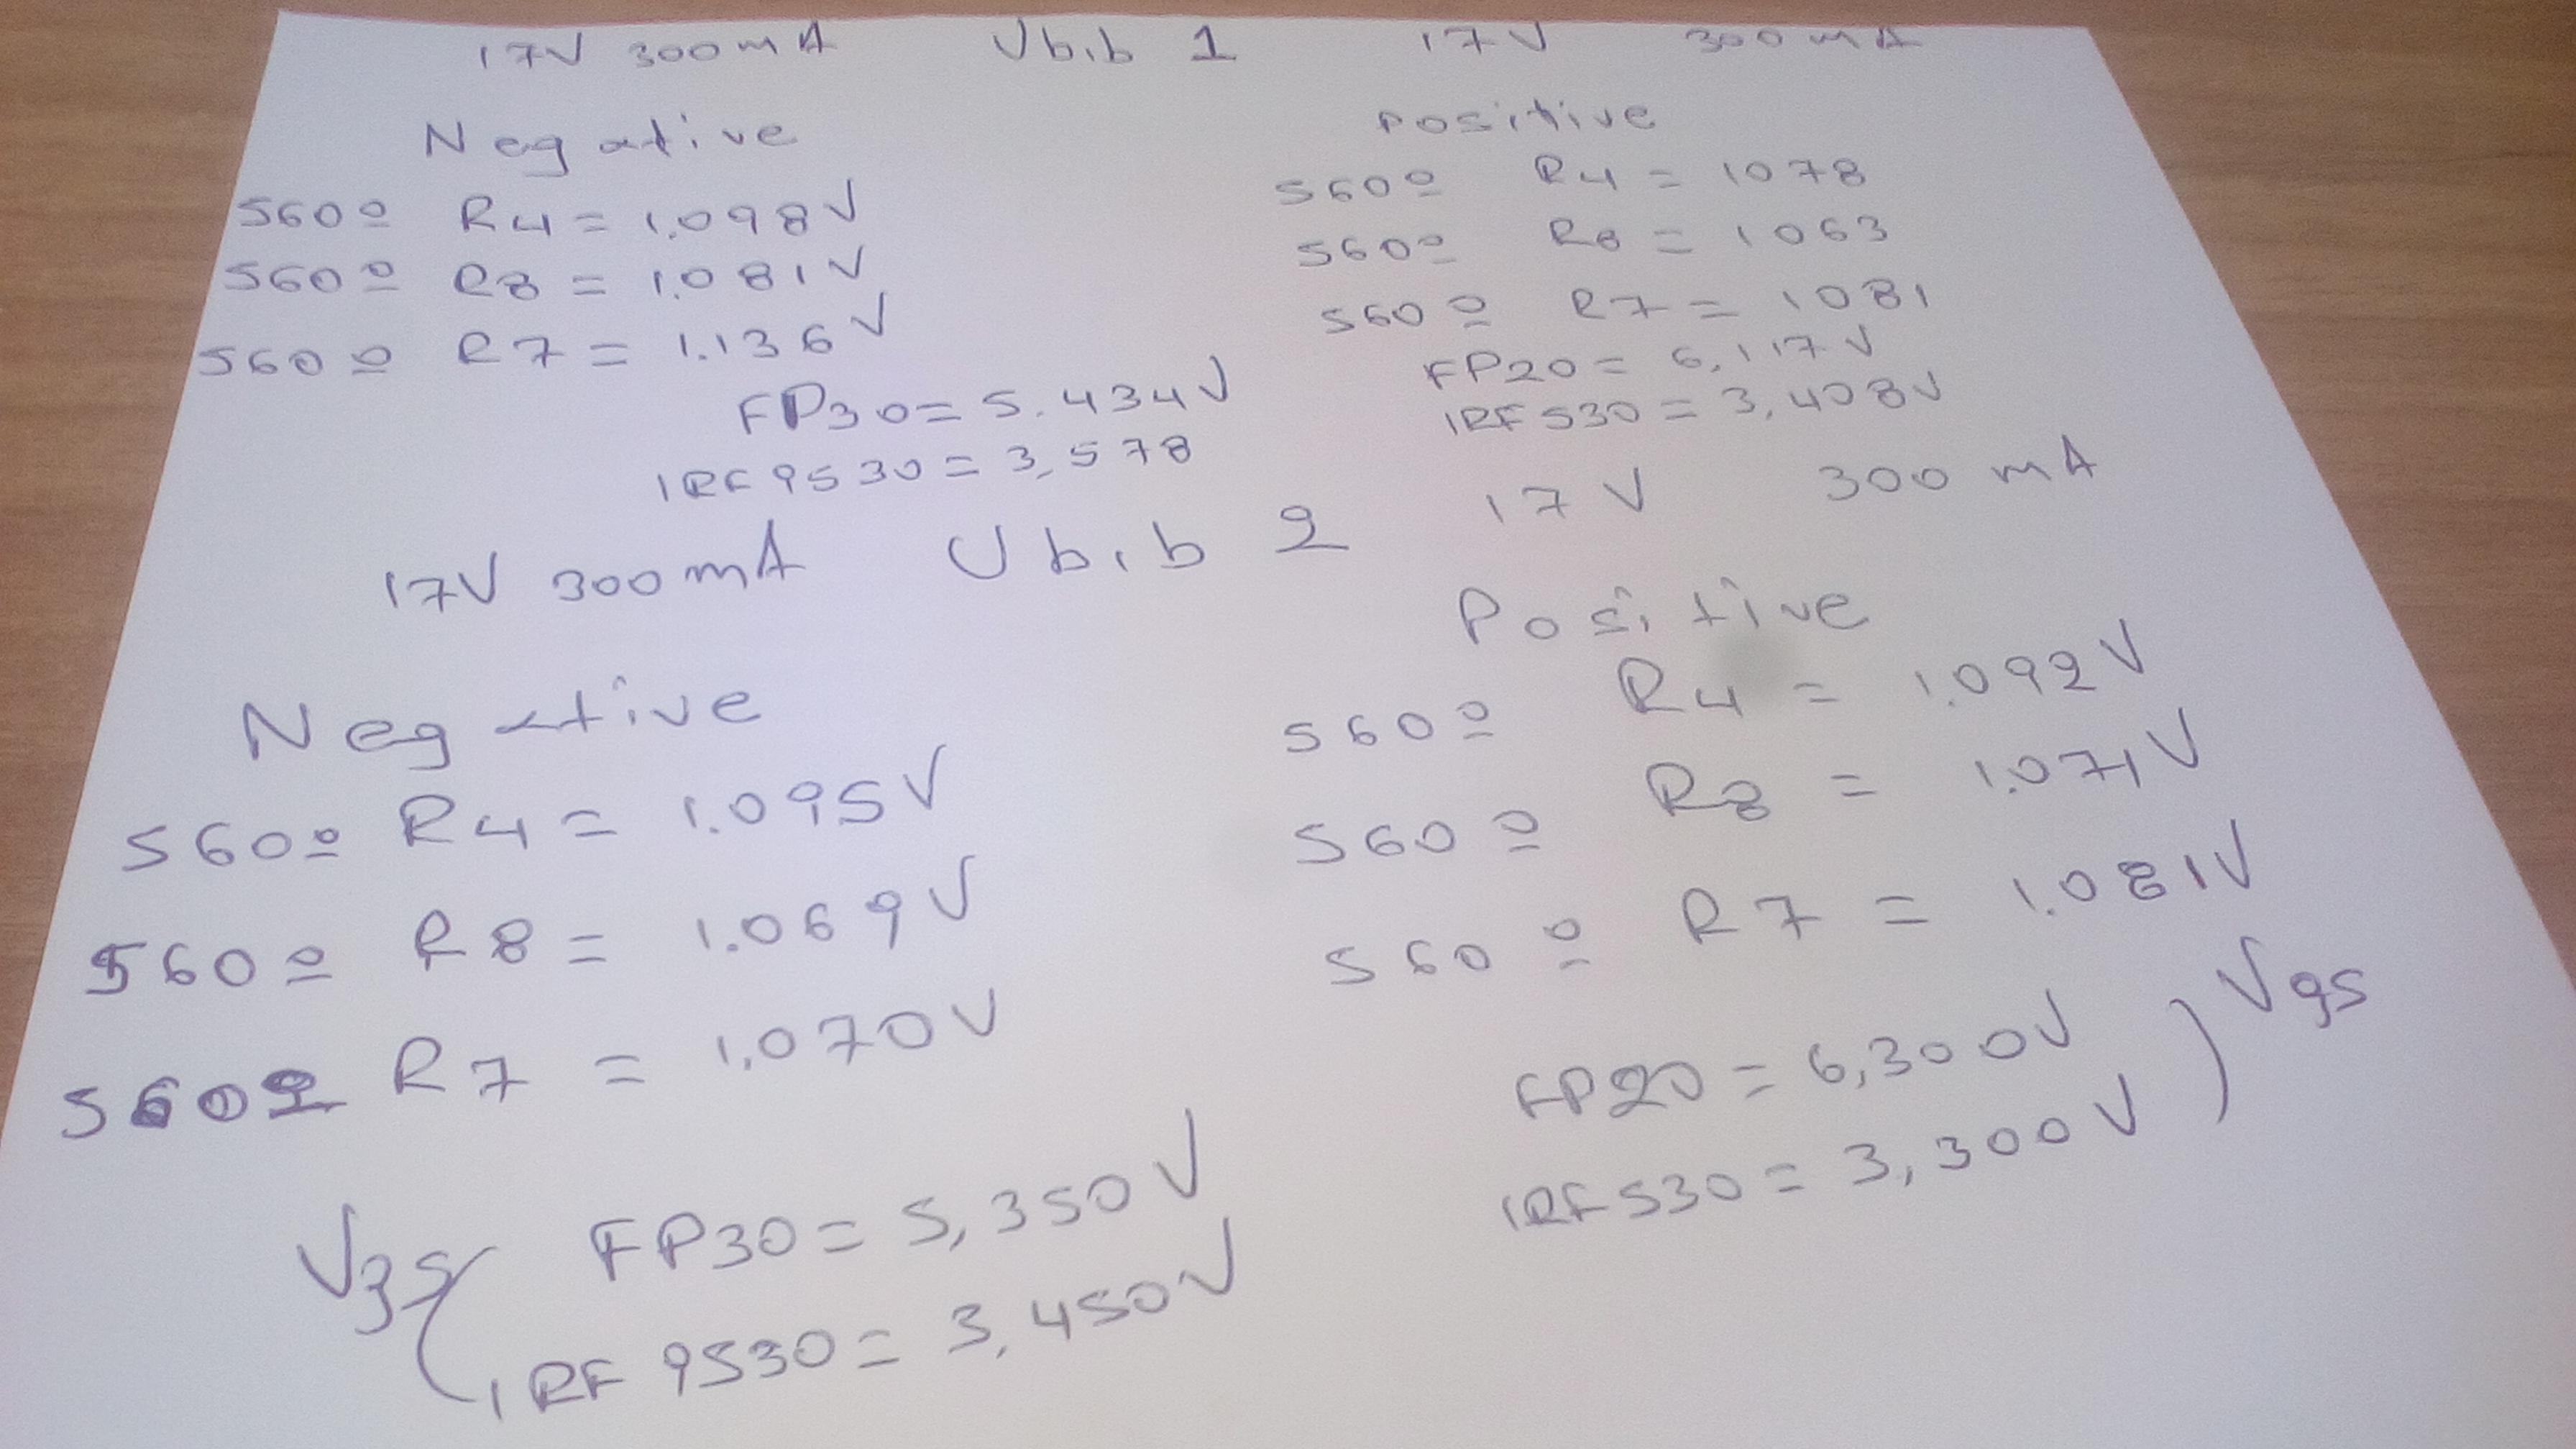 17V 300mA Ubib 1 17V 300mA
Negative
560Ω R4 = 1.098V
560Ω R8 = 1.081V
560Ω R7 = 1.136V
FP30 = 5.434V
IRF9530 = 3,578
Positive
560Ω R4 = 1078
560Ω R8 = 1063
560Ω R7 = 1081
FP20 = 6,117V
IRF530 = 3,408V
17V 300mA Ubib 2 17V 300mA
Negative
560Ω R4 = 1.095V
560Ω R8 = 1.069V
560Ω R7 = 1.070V
Vgs
FP30 = 5,350V
IRF9530 = 3,450V
Positive
560Ω R4 = 1.092V
560Ω R8 = 1.071V
560Ω R7 = 1.081V
FP20 = 6,300V
IRF530 = 3,300V
Vgs